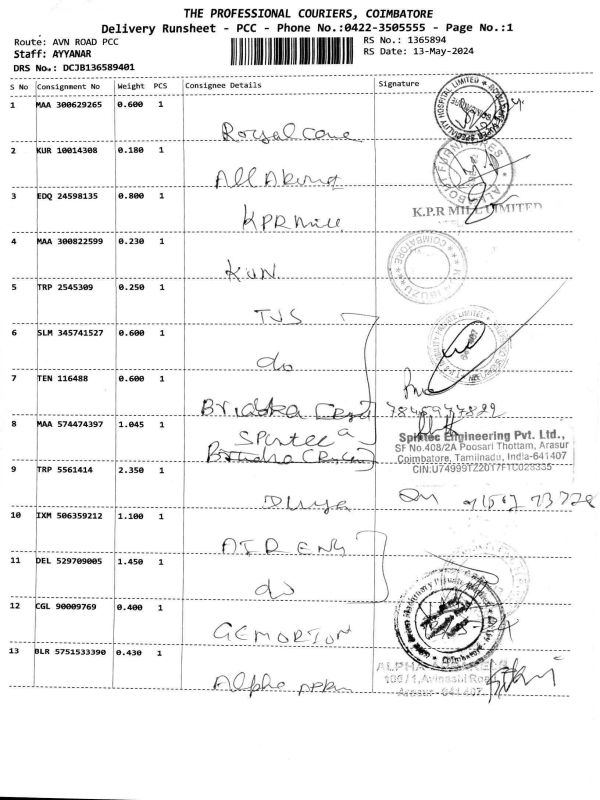 THE PROFESSIONAL COURIERS, COIMBATORE
Delivery Runsheet - PCC - Phone No.:0422-3505555 - Page No.:1
Route: AVN ROAD PCC
RS No.: 1365894
Staff: AYYANAR
RS Date: 13-May-2024
DRS No.: DCJB136589401
S No Consignment No Weight PCS Consignee Details Signature
1 MAA 300629265 0.600 1
Royal Care
2 KUR 10014308 0.180 1
All About
3 EDQ 24598135 0.800 1
KPR Mill
K.P.R MILL LIMITED
4 MAA 300822599 0.230 1
KUN
5 TRP 2545309 0.250 1
TJS
6 SLM 345741527 0.600 1
do
7 TEN 116488 0.600 1
8 MAA 574474397 1.045 1
Spintec Engineering Pvt. Ltd.,
SF No.408/2A Poosari Thottam, Arasur
Coimbatore, Tamilnadu, India-641407
9 TRP 5561414 2.350 1
Divya
10 IXM 506359212 1.100 1
AIR ENG
11 DEL 529709005 1.450 1
do
12 CGL 90009769 0.400 1
13 BLR 5751533390 0.430 1
100/1, Avinashi Road
Arasur - 641407
Alpha